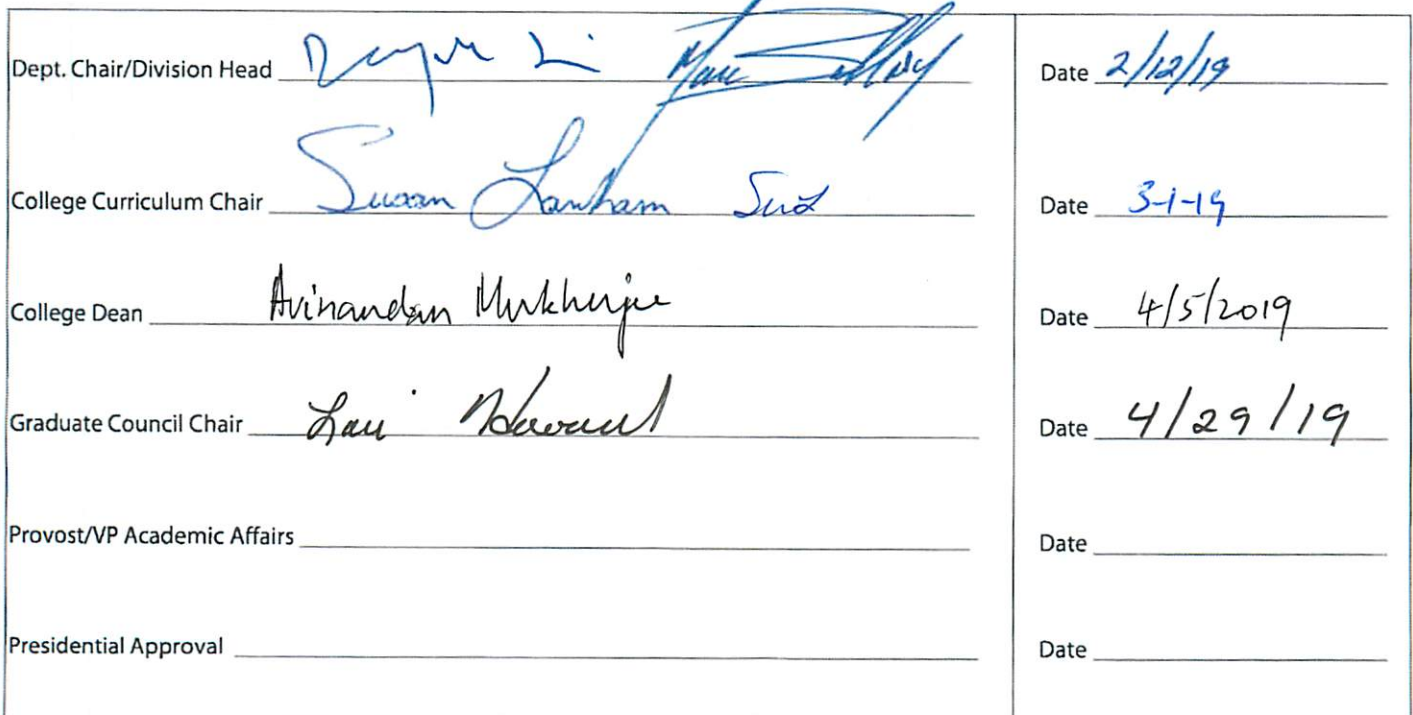 Dept. Chair/Division Head Date 2/12/19
College Curriculum Chair Susan Lanham Date 3-1-19
College Dean Avinandan Mukherjee Date 4/5/2019
Graduate Council Chair Date 4/29/19
Provost/VP Academic Affairs Date
Presidential Approval Date